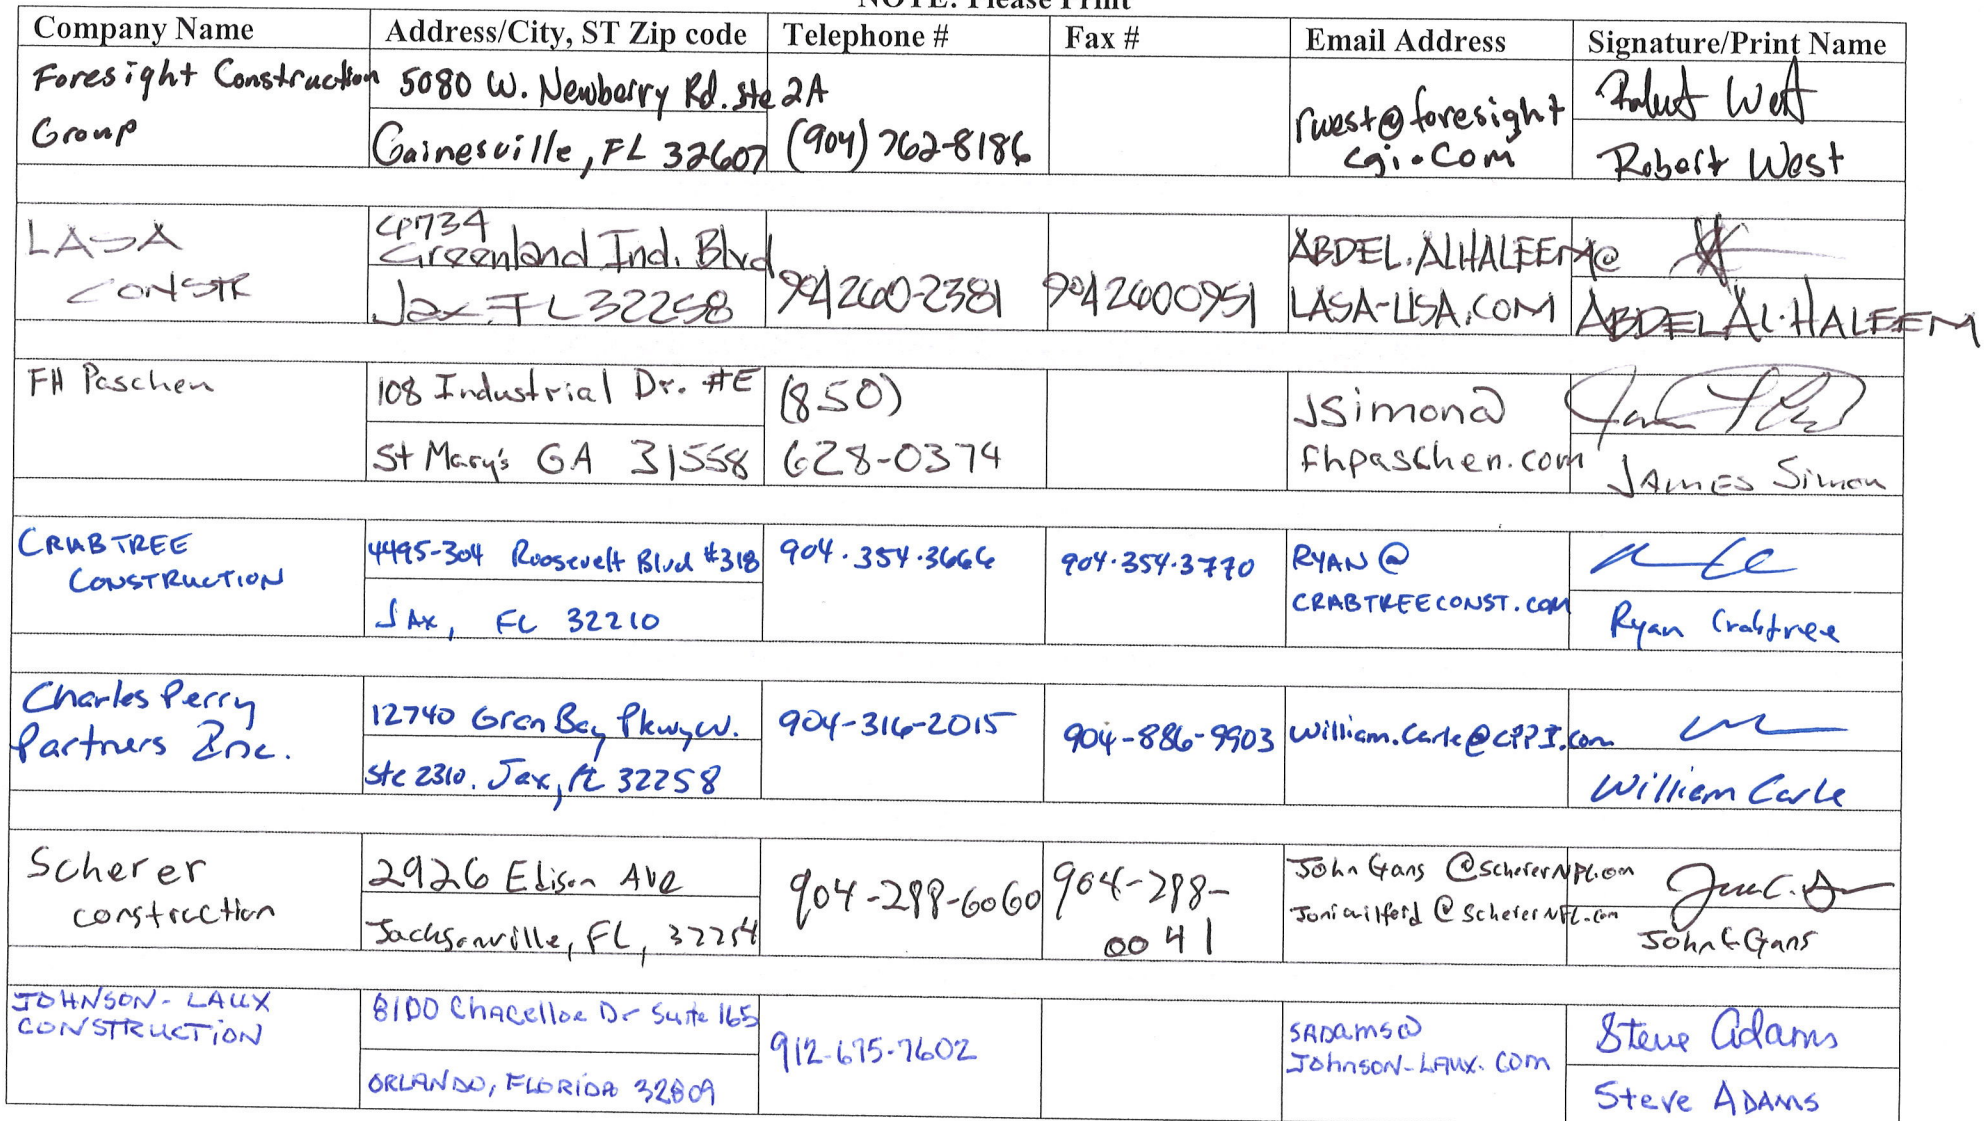 NOTE: Please Print
Company Name Address/City, ST Zip code Telephone # Fax # Email Address Signature/Print Name
Foresight Construction 5080 W. Newberry Rd. Ste 2A Robert West
Group Gainesville, FL 32607 (904) 762-8186 rwest@foresight
cgi.com Robert West
LASA
CONSTR
6734
Greenland Ind. Blvd
Jax FL 32258
904 260-2381
904 2600951
ABDEL.ALHALEEM@
LASA-USA.COM
ABDEL AL-HALEEM
FH Paschen
108 Industrial Dr. #E
St Mary's GA 31558
(850)
628-0374
jsimon@
fhpaschen.com
JAMES Simon
CRABTREE
CONSTRUCTION
4495-304 Roosevelt Blvd #318
JAX, FL 32210
904.354.3666
904.354.3770
RYAN @
CRABTREECONST.COM
Ryan Crabtree
Charles Perry
Partners Inc.
12740 Gran Bay Pkwy W.
Ste 2310. Jax, FL 32258
904-316-2015
904-886-9903
William.Carle@CPPI.com
William Carle
Scherer
construction
2926 Edison Ave
Jacksonville, FL, 32254
904-288-6060
904-288-
0041
John Gans @SchererNFL.com
Joni wilford @SchererNFL.com
John C Gans
JOHNSON-LAUX
CONSTRUCTION
8100 Chacelloe Dr Suite 165
ORLANDO, FLORIDA 32809
912-675-7602
SADAMS@
JOHNSON-LAUX.COM
Steve Adams
Steve ADAMS